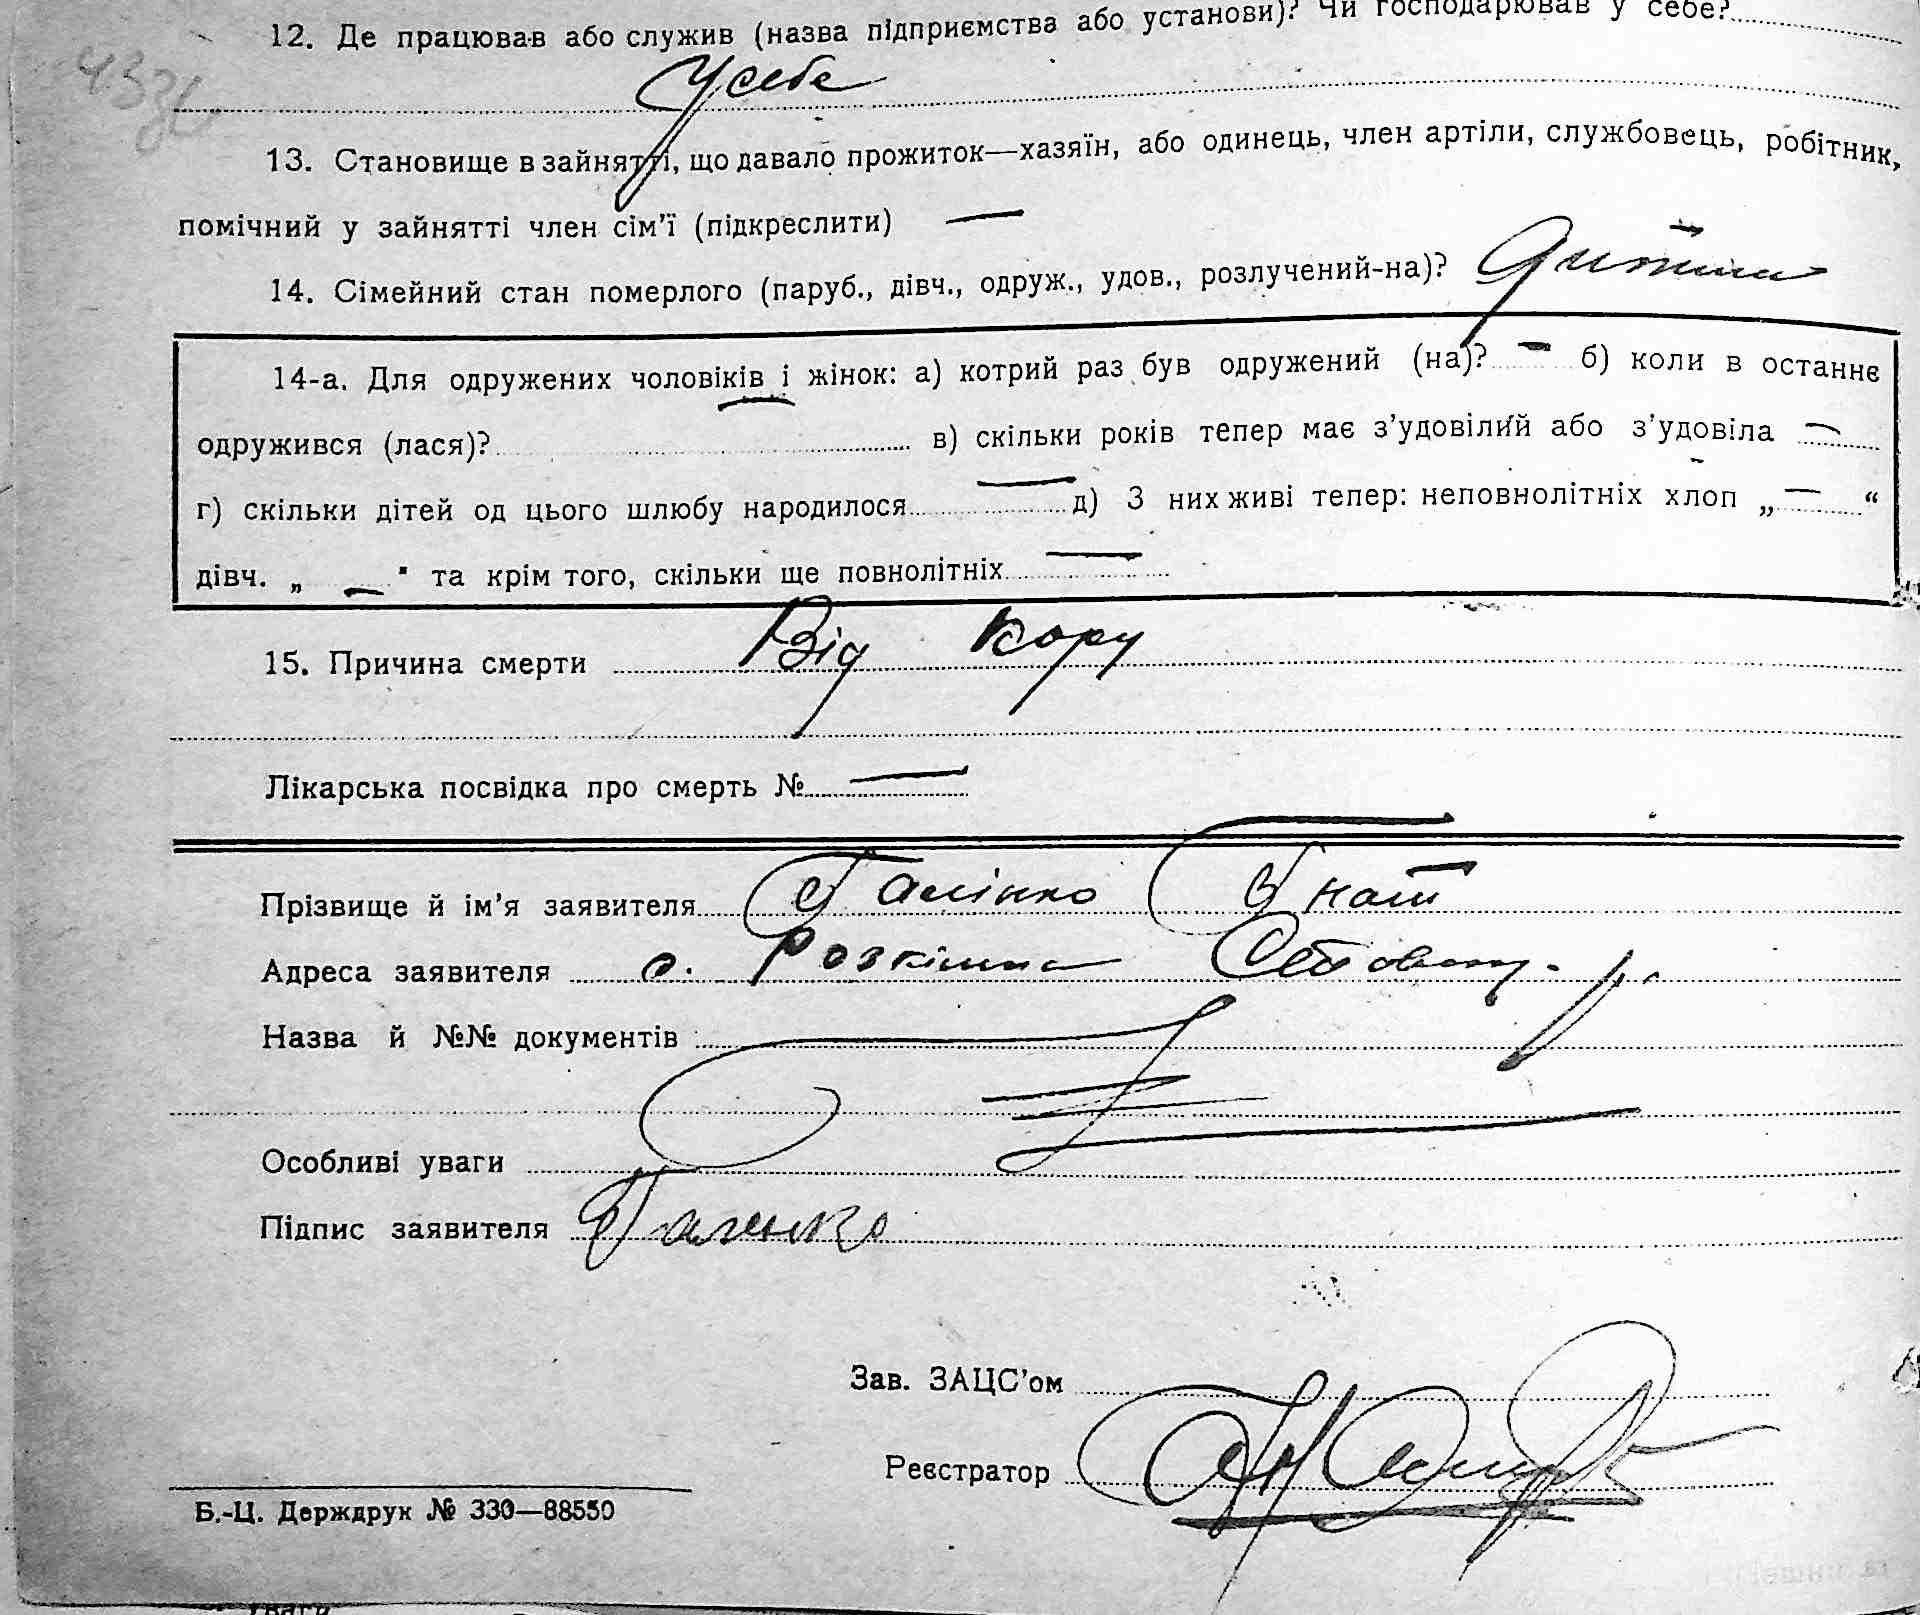 12. Де працював або служив (назва підприємства або установи)? Чи господарював у себе?
У себе
13. Становище в зайнятті, що давало прожиток—хазяїн, або одинець, член артіли, службовець, робітник,
помічний у зайнятті член сім'ї (підкреслити) —
14. Сімейний стан померлого (паруб., дівч., одруж., удов., розлучений-на)? Дитина
14-а. Для одружених чоловіків і жінок: а) котрий раз був одружений (на)? — б) коли в останнє
одружився (лася)? — в) скільки років тепер має з'удовілий або з'удовіла —
г) скільки дітей од цього шлюбу народилося — д) З них живі тепер: неповнолітніх хлоп „ — “
дівч. „ — " та крім того, скільки ще повнолітніх —
15. Причина смерти Від кору
Лікарська посвідка про смерть № —
Прізвище й ім'я заявителя Галінко Гнат
Адреса заявителя с. Розкішна
Назва й №№ документів
Особливі уваги
Підпис заявителя Галенко
Зав. ЗАЦС'ом
Реєстратор
Б.-Ц. Держдрук № 330—88550